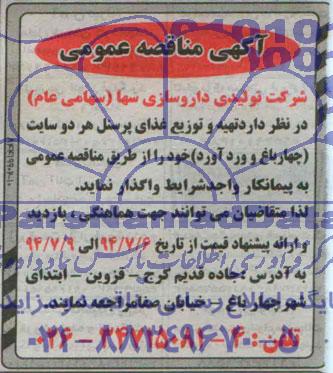 آگهی مناقصه عمومی
شرکت تولیدی داروسازی سها (سهامی عام)
در نظر دارد تهیه و توزیع غذای پرسنل هر دو سایت
(چهارباغ و ورد آورد) خود را از طریق مناقصه عمومی
به پیمانکار واجد شرایط واگذار نماید.
لذا متقاضیان می توانند جهت هماهنگی ، بازدید
و ارائه پیشنهاد قیمت از تاریخ ۹۴/۷/۶ الی ۹۴/۷/۹
به آدرس :جاده قدیم کرج – قزوین – ابتدای
شهر چهارباغ – خیابان صفا مراجعه نمایند.
تلفن :
ParsNamadData